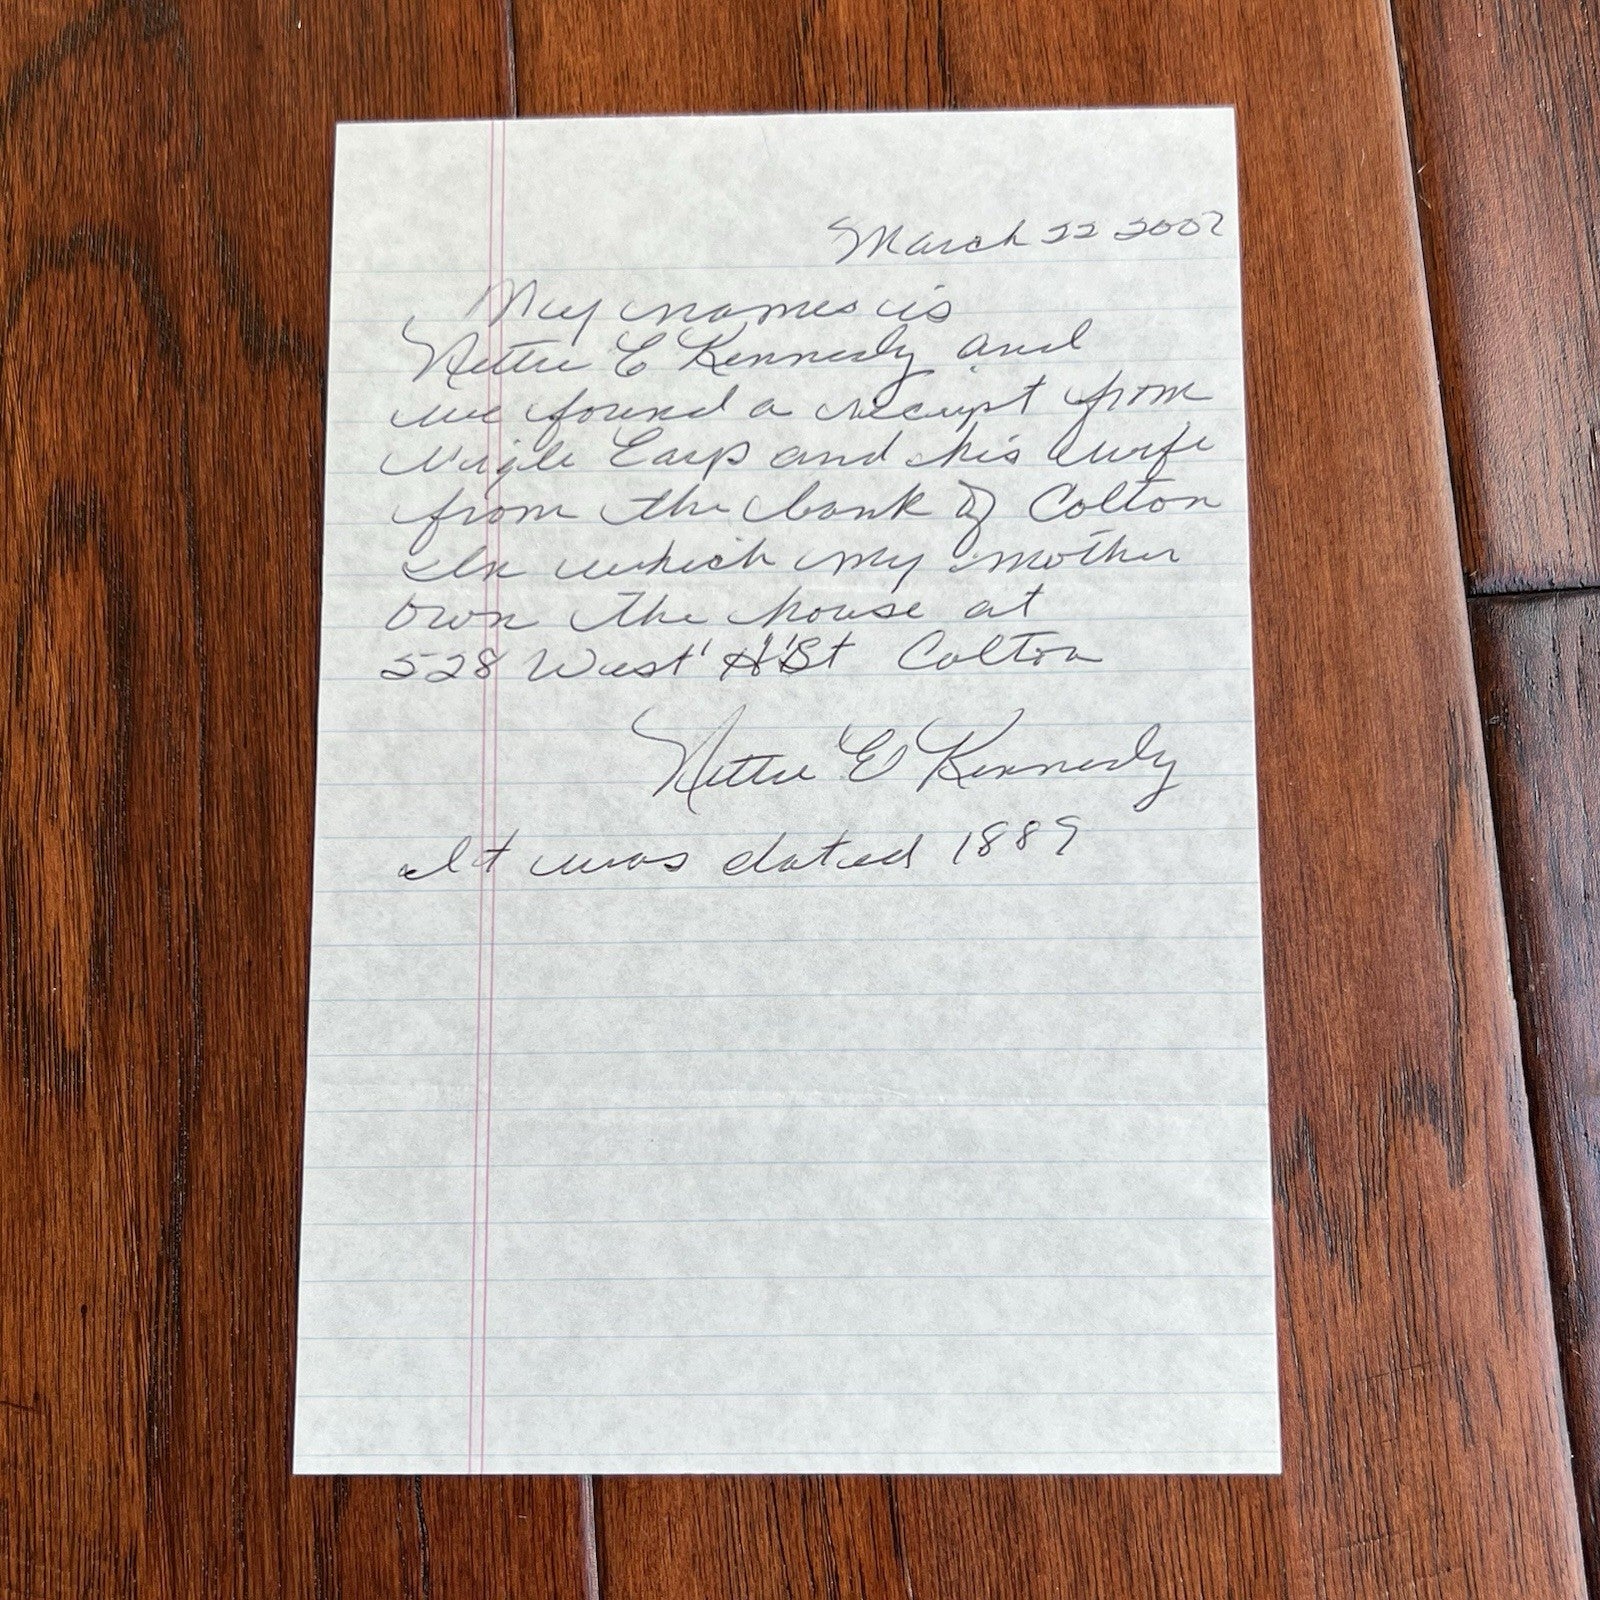 March 22 2007
My names is
Nettie E Kennedy and
we found a receipt from
Virgle Earp and his wife
from the bank of Colton
In which my mother
own the house at
528 West "H" St Colton
Nettie E Kennedy
It was dated 1889